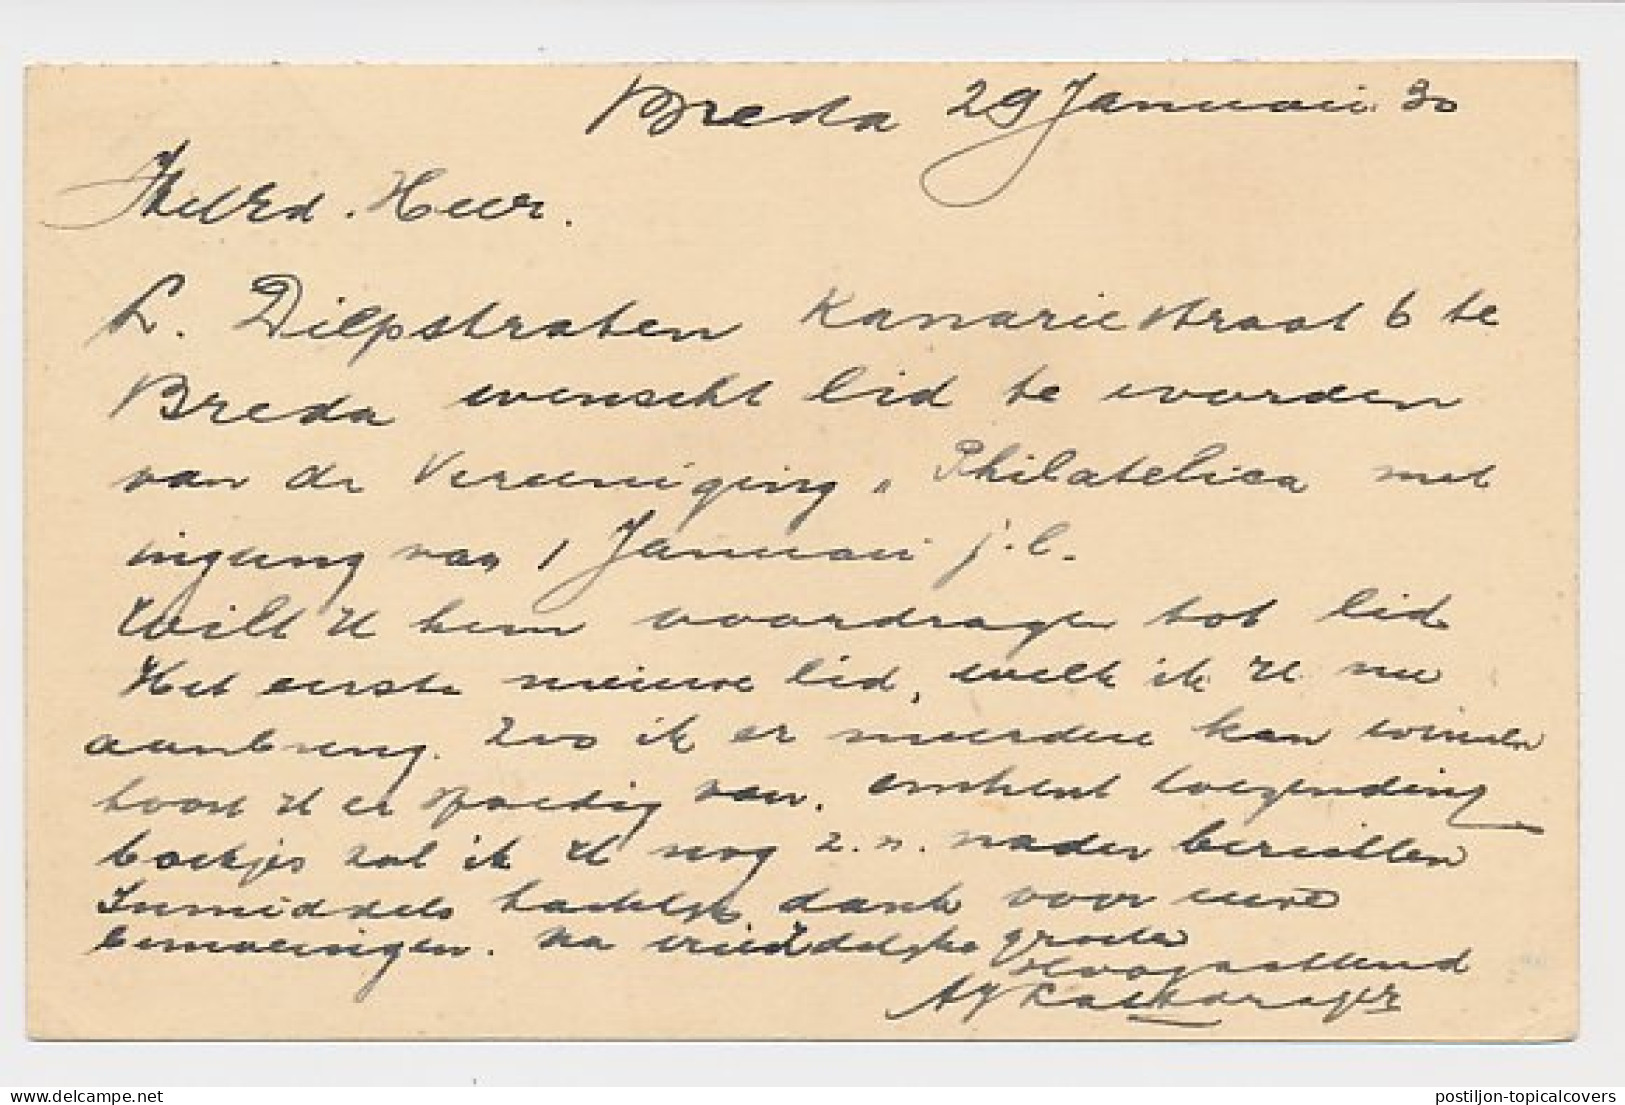 Breda 29 Januari 30
WelEd. Heer.
L. Diepstraten Kanariestraat 6 te
Breda wenscht lid te worden
van de Vereeniging „ Philatelica met
ingang van 1 Januari j.l.
Wilt U hem voordragen tot lid
Het eerste nieuwe lid, welk ik U nu
aanbreng. Zoo ik er meerdere kan winnen
hoort U er spoedig van. omtrent toezending
boekjes zal ik U nog z.n. nader berichten
Inmiddels hartelijk dank voor uwe
bemoeiingen. Na vriendelijke groeten
Hoogachtend
postiljon-topicalcovers
delcampe.net